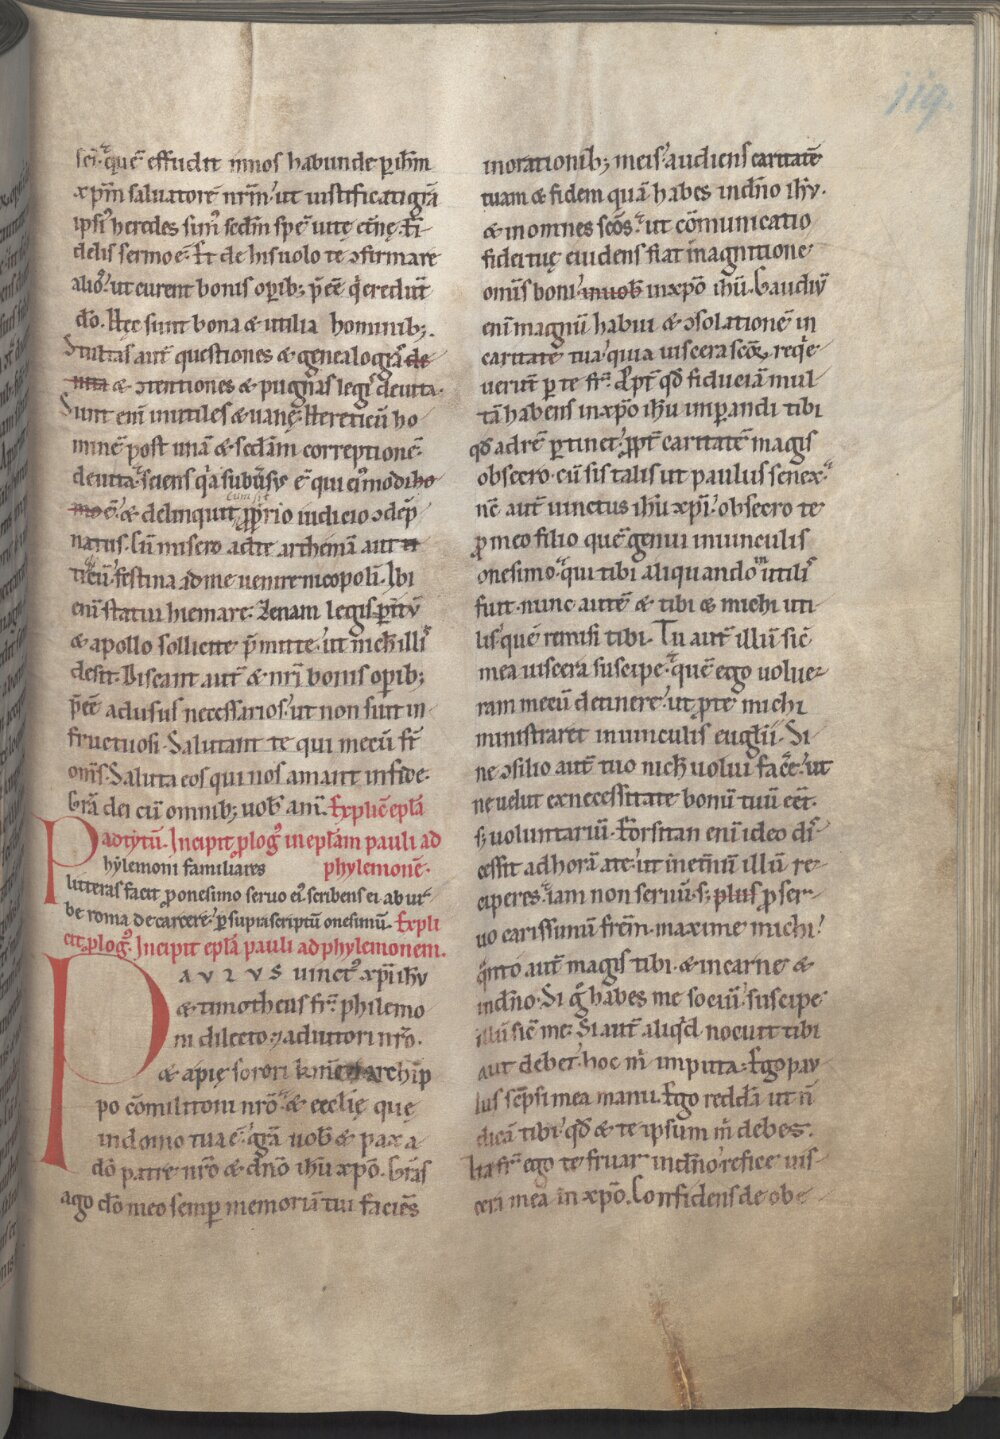 119.
sci. quē effudit innos habunde p ihm̄
xpm̄ saluatorē nrm̄. ut iustificati grā
ipsi heredes sim' scdm̄ spē uitę etn̄ę. Fi-
delis sermo ē. Et de his uolo te ɔfirmare
alios. ut curent bonis opib; p̄eē q̇ credunt
dō. Hęc sunt bona & utilia hominib;.
Stultas aut̄ questiones & genealogias de
uita & ɔtentiones & pugnas legis deuita.
Sunt enī inutiles & uanę. Hereticū ho
minē post unā & scdām correptionē
deuita. sciens qa subūsꝰ ē qui eiꝰmodi ho
mo ē. & delinquit pprio iudicio ɔdēp
cum sit
natus. Cū misero ad te arthemā aut ti
ticū. festina ad me uenire nicopoli. Ibi
enī statui hiemare. Zenam legis pitū
& apollo sollicite p̄mitte. ut nichil illis
desit. Discant aut̄ & nri bonis opib;
p̄eē ad usus necessarios. ut non sint in
fructuosi. Salutant te qui mecū st̄
om̄s. Saluta eos qui nos amant in fide.
Grā dei cū omnib; uob̄ am̄. Explic̄ epła
ad tytū. Incipit plogꝰ in epłam pauli ad
Phylemoni familiares phylemonē.
litteras facit p onesimo seruo eiꝰ. scribens ei ab ur
be roma de carcere. p suprascriptū onesimū. Expli
cit plogꝰ. Incipit epła pauli ad phylemonem.
PAVLVS uinctꝰ xpi ihu
& timotheus fr̄. philemo
ni dilecto ⁊ adiutori nrō.
& apię sorori kmē & archip
po cōmilitoni nrō. & ecclię quę
in domo tua ē. grā uob̄ & pax a
dō patre nrō & dn̄o ihu xpō. Grās
ago dō meo semp memoriā tui faciēs
in orationib; meis. audiens caritatē
tuam & fidem quā habes in dn̄o ihu.
& in omnes scōs. ut cōmunicatio
fidei tuę euidens fiat in agnitione
omīs boni in uob̄ in xpō ihu. Gaudiū
enī magnū habui & ɔsolationē in
caritate tua. quia uiscera scōꝝ reqie
uerunt p te fr̄. Ppt̄ qd fiduciā mul-
tā habens in xpō ihu imperandi tibi
qd ad rē pertinet. ppt̄ caritatē magis
obsecro. cū sis talis ut paulus senex.
nc̄ aut̄ uinctus ihu xpi. obsecro te
p meo filio quē genui in uinculis
onesimo. qui tibi aliquando inutilis
fuit. nunc autē & tibi & michi uti-
lis. quē remisi tibi. Tu aut̄ illū sic̄
mea uiscera suscipe. quē ego uolue-
ram mecū detinere. ut p te michi
ministraret in uinculis euglii. Si-
ne ɔsilio aut̄ tuo nich uolui facē. ut
ne uelut ex necessitate bonū tuū eēt.
s; uoluntariū. Forsitan enī ideo dis-
cessit ad horā a te. ut in et̄nū illū re-
ciperes. iam non seruū. s; plus p ser-
uo carissimū frēm. maxime michi.
q̇nto aut̄ magis tibi. & in carne &
in dn̄o. Si g̊ habes me sociū. suscipe
illū sic̄ me. Si aut̄ aliqd nocuit tibi
aut debet. hoc m̄ imputa. Ego pau
lus scpsi mea manu. Ego reddā. ut n̄
dicā tibi. qd & te ipsum m̄ debes.
Ita fr̄ ego te fruar in dn̄o. refice uis-
cera mea in xpō. Confidens de obe-